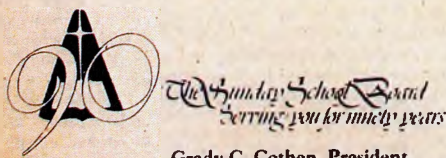 90
The Sunday School Board
Serving you for ninety years
Grady C. Cothen, President